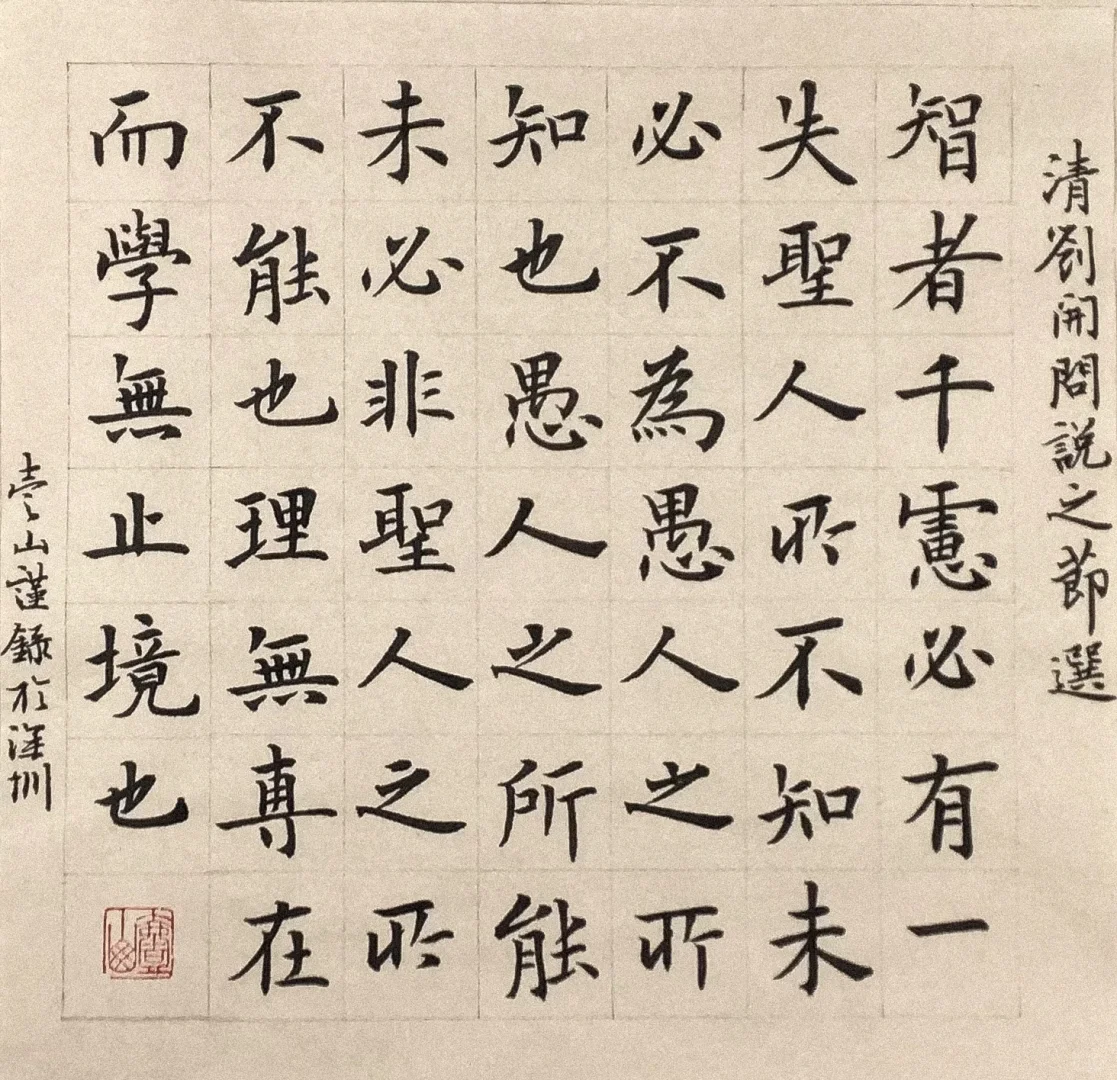 清劉開問説之節選
智者千慮必有一
失聖人所不知未
必不為愚人之所
知也愚人之所能
未必非聖人之所
不能也理無專在
而學無止境也
壹山謹錄於深圳